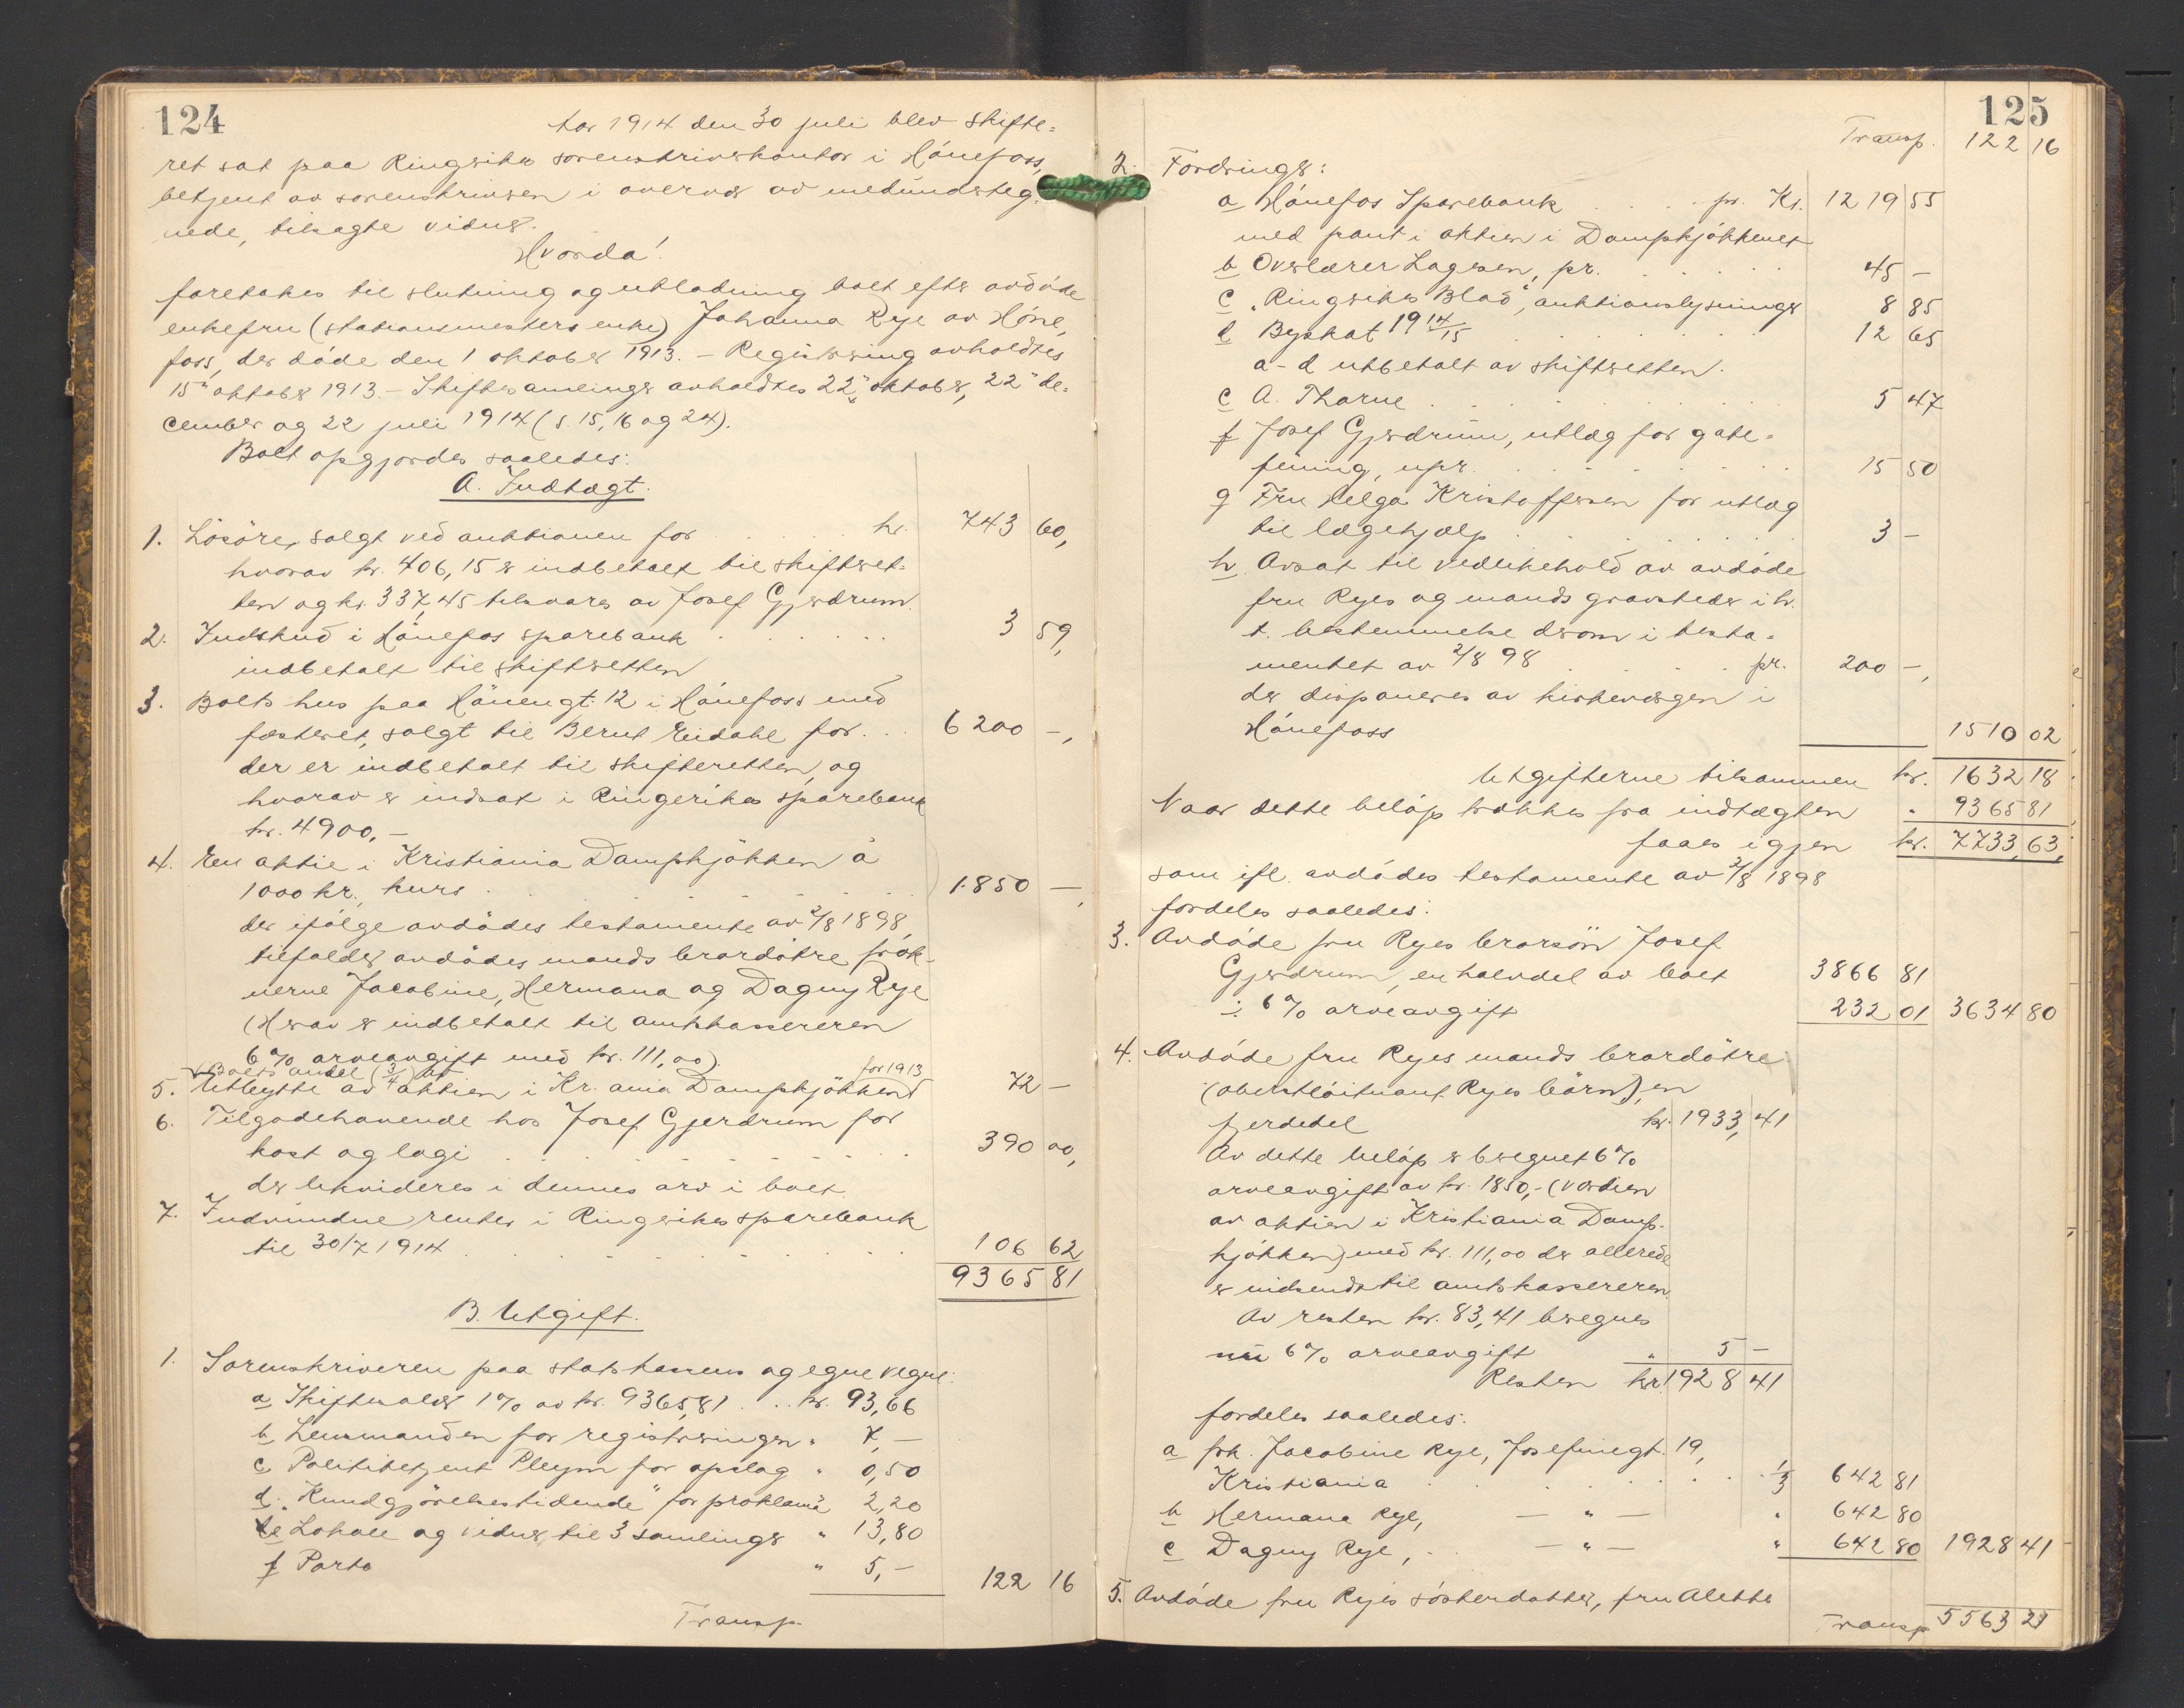 124
Aar 1914 den 30 juli blev skifte=
ret sat paa Ringerike sorenskriverkontor i Hönefoss,
betjent av sorenskriveren i overvær av medunderteg=
nede, tilsagte vidner.
Hvorda!
foretokes til slutning og utlodning boet efter avdöde
enkefru (stationsmesters enke) Johanna Rye av Höne=
foss, der döde den 1 oktober 1913. - Registrering avholdtes
15de oktober 1913. - Skiftesamlinger avholdtes 22. oktober, 22 de=
cember og 22 juli 1914 (s. 15, 16 og 24).
Boet opgjordes saaledes:
A. Indtægt.
1. Lösöre, solgt ved auktionen for . . . kr. 743 60,
hvorav kr. 406,15 er indbetalt til skifteret=
ten og kr. 337,45 tilsvares av Josef Gjerdrum.
2. Indskud i Hönefos sparebank . . . . . . 3 59,
indbetalt til skifteretten
3. Boets hus paa Hönengt. 12 i Hönefoss med
festeret, solgt til Bernt Eidahl for . . . 6200 -,
der er indbetalt til skifteretten, og
hvorav er indsat i Ringerikes sparebank
kr. 4900,-
4. En aktie i Kristiania Dampkjökken á
1000 kr., kurs . . . . . . . 1850 -,
der ifölge avdödes testamente av 2/8 1898,
tilfalder avdödes mands brordötre frök-
nerne Jacobine, Hermana og Dagny Rye
(Herav er indbetalt til amtskassereren
6% arveavgift med kr. 111,00).
Boets andel (3/4) av for 1913
5. Utbytte av aktien i Kr.ania Dampkjökken 72 -
6. Tilgodehavende hos Josef Gjerdrum for
kost og logi . . . . . . . . . 390 00,
der likvideres i dennes arv i boet.
7. Indvundne renter i Ringerikes sparebank
til 30/7 1914 . . . . . . . . . 106 62
9365 81
B. Utgift.
1. Sorenskriveren paa statskassens og egne vegne:
a Skiftesalær 1% av kr. 9365,81 . . kr. 93,66
b Lensmanden for registreringen " 7,-
c Politibetjent Pleym for opslag " 0,50
d. "Kundgjörelsestidende" for proklama 2,20
e Lokale og vidner til 3 samlinger " 13,80
f Porto " 5,- 122 16
Transp.
125
Transp. 122 16
2. Fordringer:
a Hönefos Sparebank . . . . pr. Kr. 1219 55
med pant i aktien i Dampkjökkenet
b Overlærer Lagesen, pr. . . . . . 45 -
c "Ringerikes Blad", auktionslysninger 8 85
d Byskat 19 14/15 . . . . . . 12 65
a-d utbetalt av skifteretten.
e A. Thorne . . . . . . . . . 5 47
f Josef Gjerdrum, utlæg for gate=
feining, upr. . . . . . . . . 15 50
g Fru Helga Kristoffersen for utlæg
til lægehjælp . . . . . . . . 3 -
h. Avsat til vedlikehold av avdöde
fru Ryes og mands gravsteder i h.
t. bestemmelse derom i testa=
mentet av 2/8 98 . . . . . pr. 200 -,
der disponeres av kirkevergen i
Hönefoss 1510 02
Utgifterne tilsammen kr. 1632 18
Naar dette belöp trækkes fra indtægten " 9365 81
faaes igjen kr. 7733,63,
som ifl. avdödes testamente av 2/8 1898
fordeles saaledes:
3. Avdöde fru Ryes brorsön Josef
Gjerdrum, en halvdel av boet 3866 81
÷ 6% arveavgift 232 01 3634 80
4. Avdöde fru Ryes mands brordötre
(oberstlöitnant Ryes börn), en
fjerdedel kr. 1933,41
Av dette belöp er beregnet 6%
arveavgift av kr. 1850,- (værdien
av aktien i Kristiania Damp-
kjökken) med kr. 111,00 der allerede
er indsendt til amtskassereren.
Av resten kr. 83,41 beregnes
nu 6% arveavgift " 5 -
Resten kr. 1928 41
fordeles saaledes:
a frk. Jacobine Rye, Josefinegt. 19,
Kristiania . . . . . . 1/3 642 81
b Hermana Rye, - " - " 642 80
c Dagny Rye, - " - " 642 80 1928 41
5. Avdöde fru Ryes sösterdatter, fru Alethe
Transp 5563 21